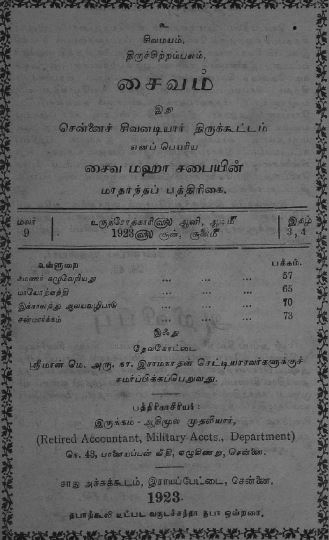 உ
சிவமயம்.
திருச்சிற்றம்பலம்.
சைவம்
இது
சென்னைச் சிவனடியார் திருக்கூட்டம்
எனப் பெயரிய
சைவ மஹா சபையின்
மாதாந்தப் பத்திரிகை.
மலர் 9 ருத்ரோத்காரிளு ஆனி, ஆடிமீ 1923ளு சூன், சூலைமீ இதழ் 3, 4
உள்ளுறை பக்கம்.
சமணர் கழுவேறியது ... ... ... 57
மாயோற்பத்தி ... ... ... 65
இக்காலத்து ஆலயவழிபாடு ... ... ... 70
சன்மார்க்கம் ... ... ... 73
இஃது
தேவகோட்டை
ஸ்ரீமான் மெ. அரு. நா. இராமநாதன் செட்டியாரவர்களுக்குச்
சமர்ப்பிக்கப்பெறுவது.
பத்திராசிரியர்:
இருக்கம் - ஆதிமூல முதலியார்,
(Retired Accountant, Military Accts., Department)
நெ. 48, பாளையப்பன் வீதி, ஏழுகிணறு, சென்னை.
சாது அச்சுக்கூடம், இராயப்பேட்டை, சென்னை.
1923.
தபாற்கூலி உட்பட வருடச்சந்தா ரூபா ஒன்றரை.